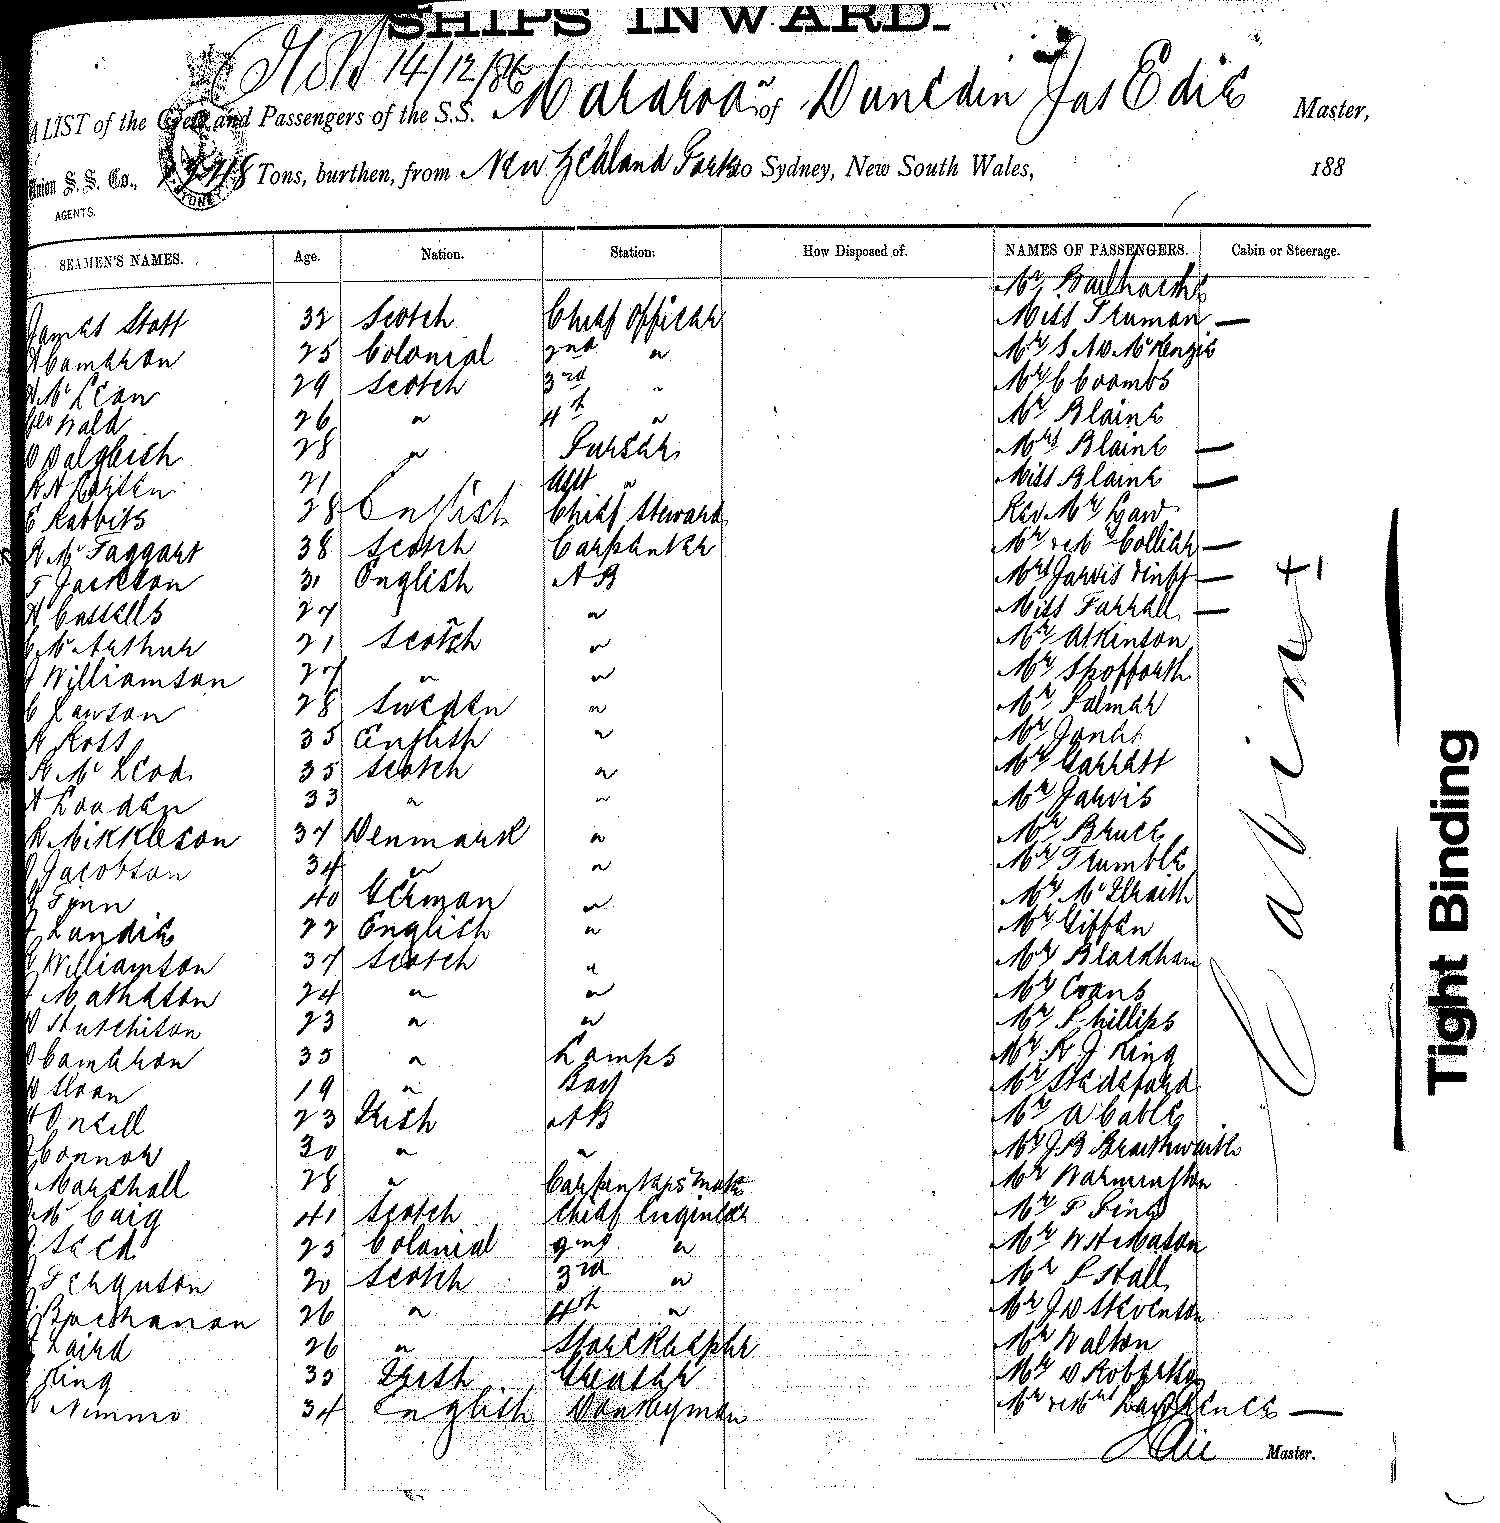 SHIPS INWARD.
14/12/86
A LIST of the Crew and Passengers of the S.S. Mararoa of Dunedin Jas Edie Master,
Union S.S. Co., Tons, burthen, from New Zealand Ports to Sydney, New South Wales, 188
AGENTS.
SEAMEN'S NAMES. Age. Nation. Station. How Disposed of. NAMES OF PASSENGERS. Cabin or Steerage.
Mr
James Stott 32 Scotch Chief Officer Miss Truman —
A Cameron 25 Colonial 2nd " Mr S A D McKenzie
A McLean 29 Scotch 3rd " Mr C Coombs
Geo Wald 26 " 4th " Mr Blaine
D Dalgleish 28 " Purser Mrs Blaine —
21 Asst " Miss Blaine —
E Rabbits 28 English Chief Steward Rev. Mr
R McTaggart 38 Scotch Carpenter Mr & Mrs Collier —
T Jackson 31 English AB Mrs Jarvis & inft —
A Cassells 27 " " Miss Farrell —
C McArthur 21 Scotch " Mr Atkinson
J Williamson 27 " " Mr Spofforth
C Lawson 28 Sweden " Mr Palmer
A Ross 35 English " Mr Jones
R McLeod 35 Scotch " Mr Garrett
A Louden 33 " " Mr Jarvis
R Mikkleson 37 Denmark " Mr Bruce
J Jacobson 34 " " Mr Trumble
J Finn 40 German " Mr McIlraith
J Landie 22 English " Mr Giffen
G Williamson 37 Scotch " Mr Blackham
J Matheson 24 " " Mr Evans
W Hutchison 23 " " Mr Phillips
D Cameron 35 " Lamps Mr R J King
W Sloan 19 " Boy Mr Stedeford
H Oneill 23 Irish AB Mr A Cable
J Connor 30 " " Mr J B Braithwaite
J Marshall 28 " Carpenters mate Mr Warmington
McCaig 41 Scotch Chief Engineer Mr F King
J Steed 25 Colonial 2nd " Mr W H Mason
J Ferguson 20 Scotch 3rd " Mr P Hall
J Buchanan 26 " 4th " Mr J D Stevenson
J Laird 26 " Storekeeper Mr Walton
J King 35 Irish Greaser Mr D Robertson
R Nimmo 34 English Donkeyman Mr & Mrs Lawrence —
Cabin
J Edie Master.
Tight Binding